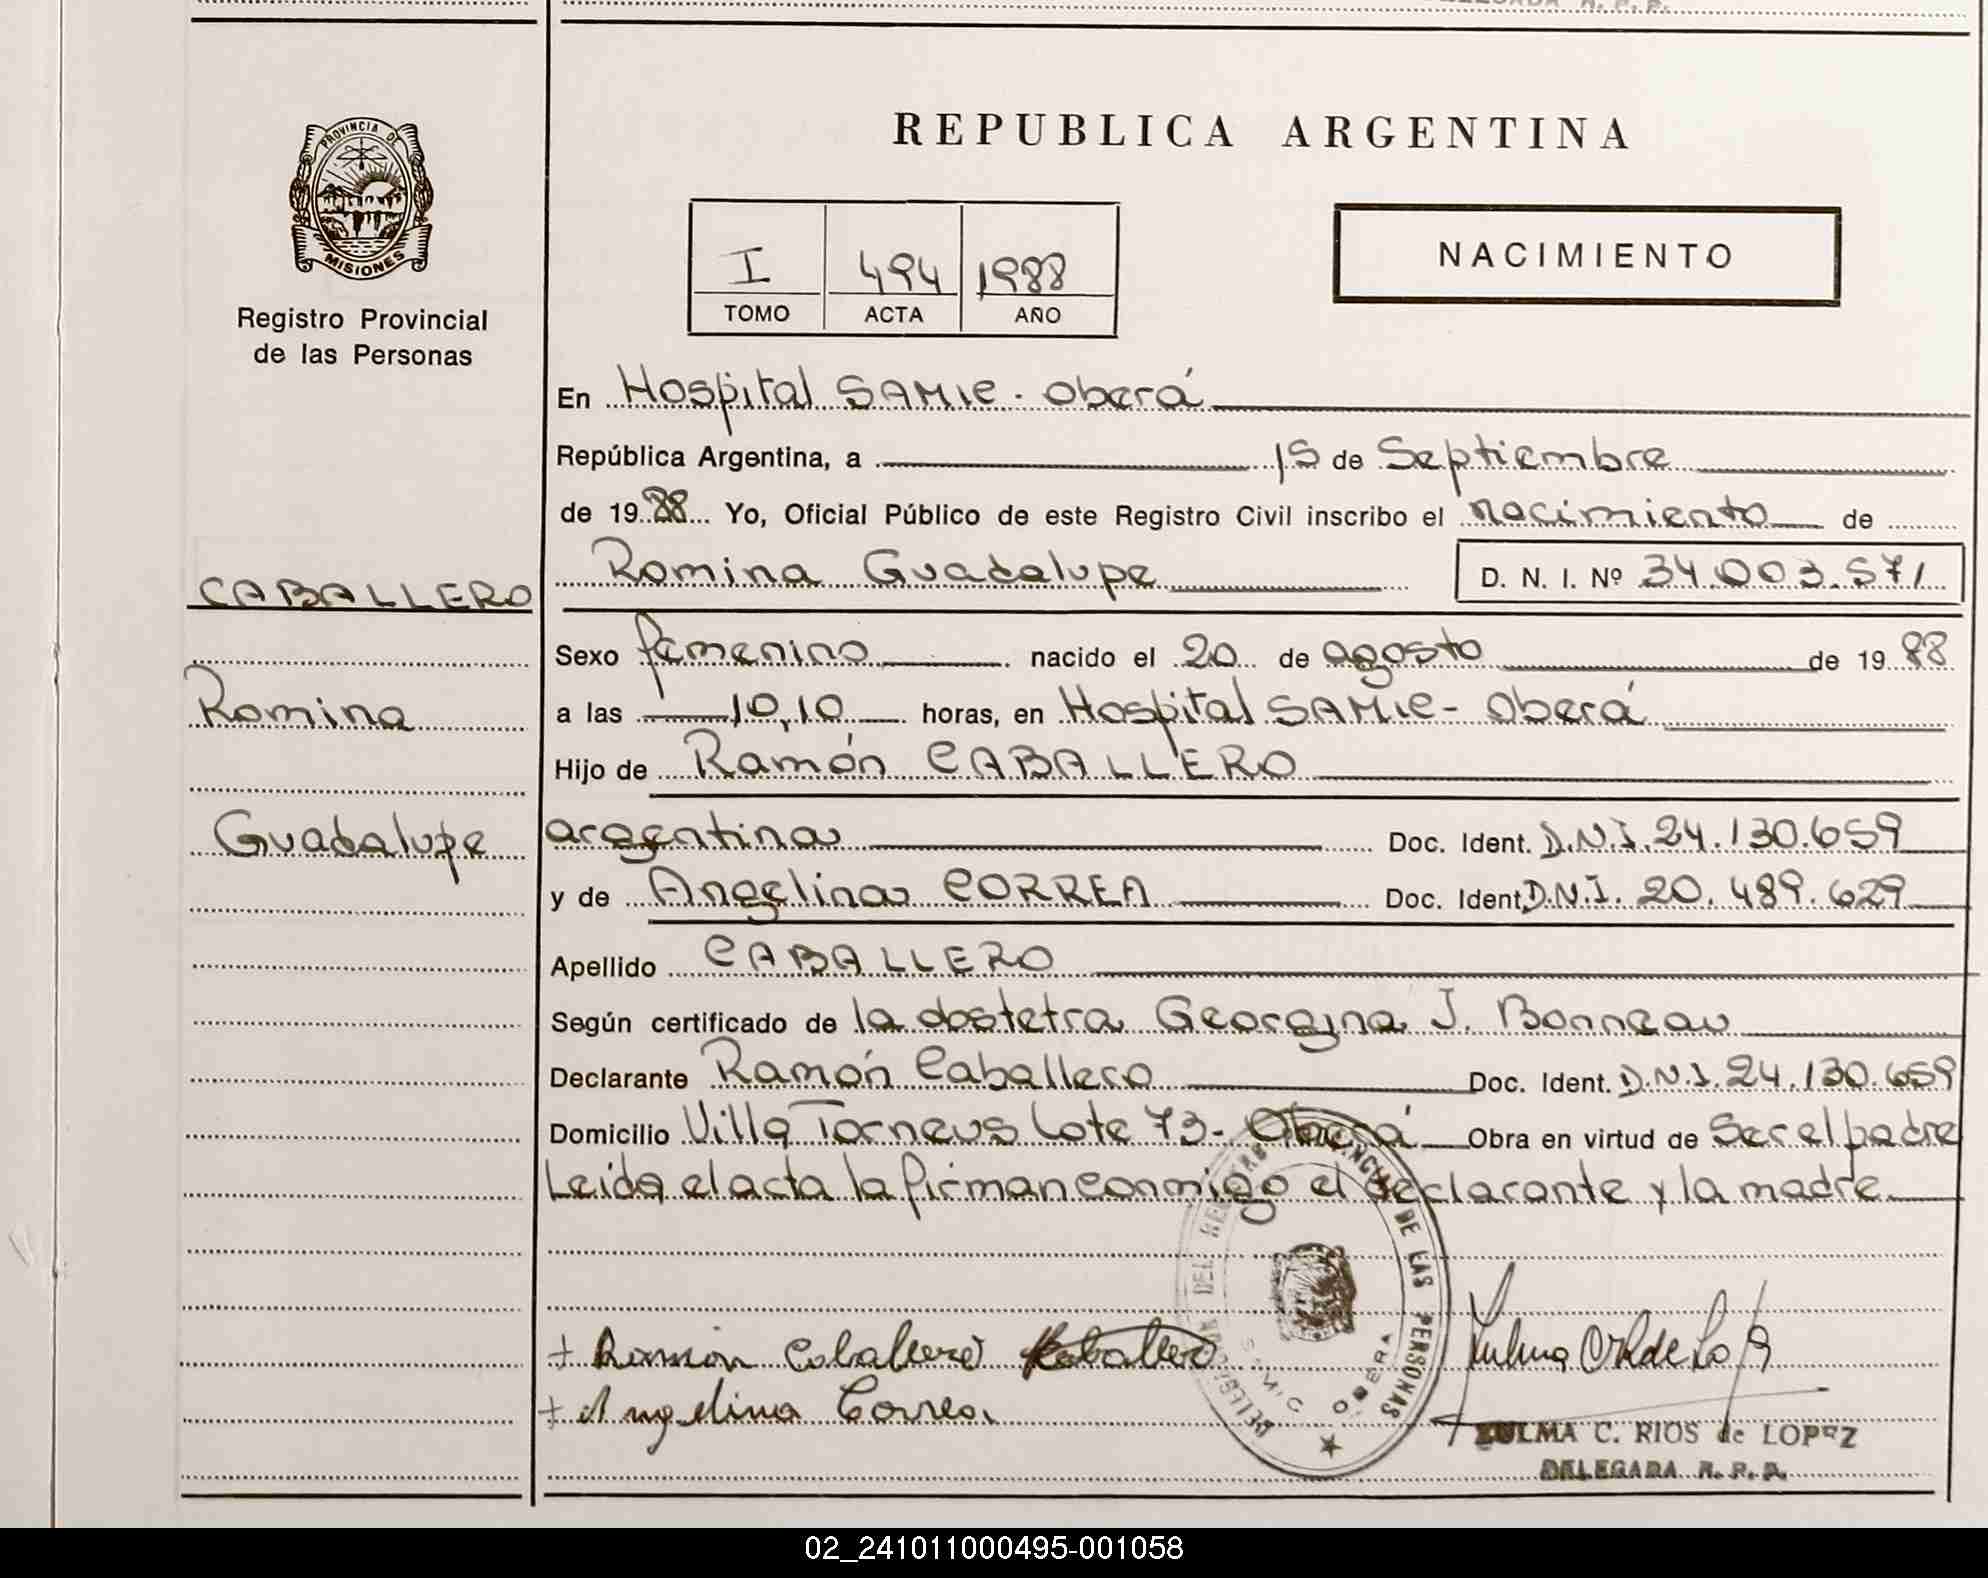 DELEGADA R. P. P.
PROVINCIA DE
MISIONES
Registro Provincial
de las Personas
CABALLERO
Romina
Guadalupe
REPUBLICA ARGENTINA
I 494 1988
TOMO ACTA AÑO
NACIMIENTO
En Hospital SAMIC - Oberá
República Argentina, a 15 de Septiembre
de 1988 Yo, Oficial Público de este Registro Civil inscribo el nacimiento de
Romina Guadalupe D. N. I. Nº 34.003.571
Sexo femenino nacido el 20 de agosto de 1988
a las 10,10 horas, en Hospital SAMIC - Oberá
Hijo de Ramón CABALLERO
argentina Doc. Ident. D.N.I. 24.130.659
y de Angelina CORREA Doc. Ident. D.N.I. 20.489.629
Apellido CABALLERO
Según certificado de la obstetra Georgina J. Bonneau
Declarante Ramón Caballero Doc. Ident. D.N.I. 24.130.659
Domicilio Villa Torneus Lote 73 - Oberá Obra en virtud de Ser el padre
Leída el acta la firman conmigo el declarante y la madre
+ Ramón Caballero Rcaballero
+ Angelina Correa
DELEGACION DEL REGISTRO PROVINCIAL DE LAS PERSONAS
SAMIC OBERA
ZULMA C. RIOS de LOPEZ
DELEGADA R. P. P.
02_241011000495-001058